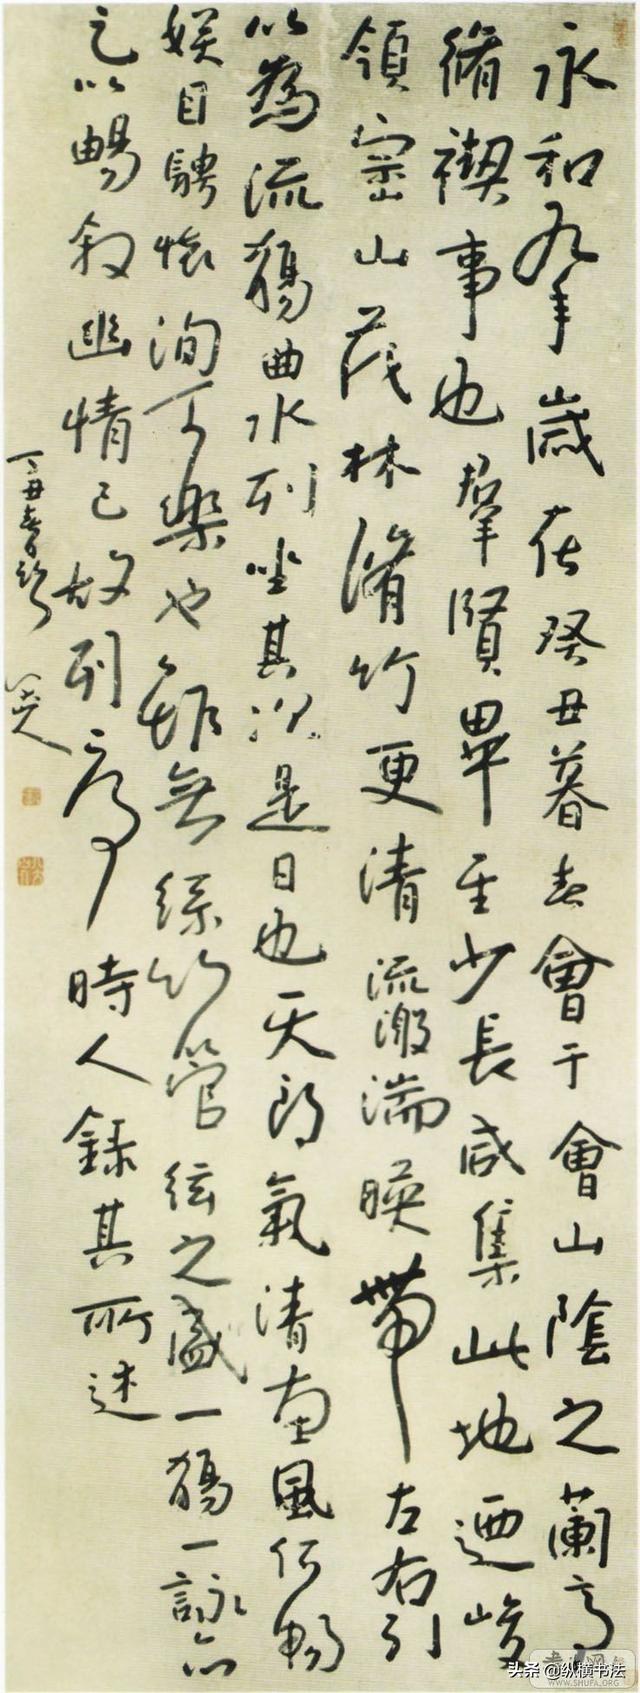 永和九年歲在癸丑暮春會于會山陰之蘭亭
脩禊事也羣賢畢至少長咸集此地迺峻
領崇山茂林脩竹更清流激湍暎帶左右引
以為流觴曲水列坐其次是日也天朗氣清惠風和暢
娛目騁懷洵可樂也雖無絲竹管絃之盛一觴一詠亦
足以暢敘幽情已故列序時人錄其所述
丁丑春
八大山人
头条 @纵横书法
WWW.SHUFA.ORG